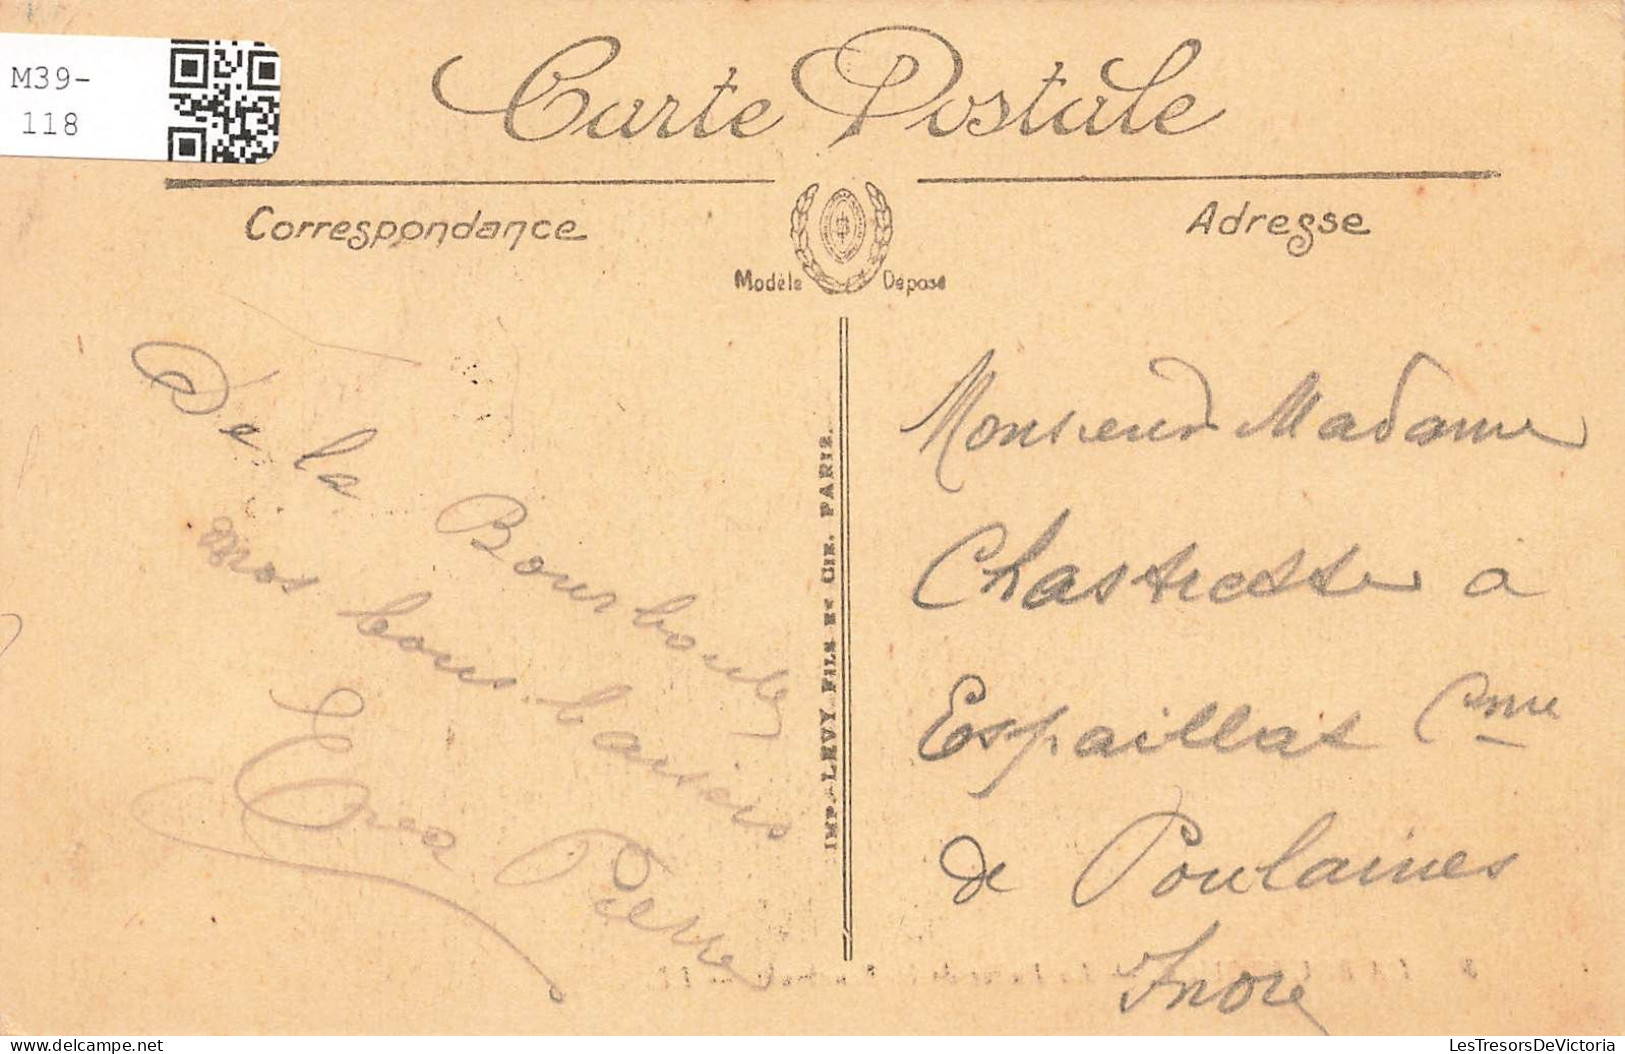 M39-
118
Carte Postale
Correspondance
Adresse
Modèle Déposé
De la Bourboule
mos bons baisers
Pierre
IMP. LEVY FILS ET CIE. PARIS.
Monsieur Madame
Chastrette a
Espaillat Cmne
de Poulaines
Indre
delcampe.net
LesTresorsDeVictoria